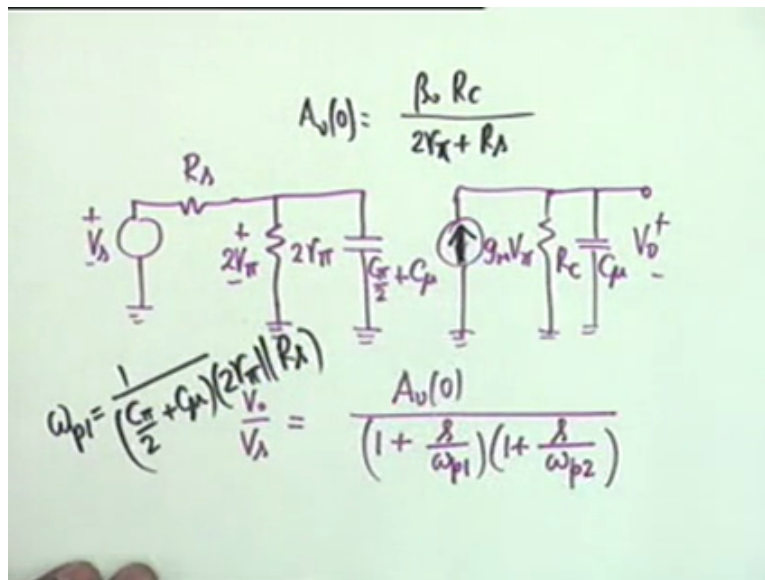 Aᵥ(0) = β₀ R_C / (2r_π + R_s)
R_s
+ V_s -
+ 2V_π -
2r_π
C_π/2 + C_μ
g_m V_π
R_C
C_μ
V_o + -
ω_p1 = 1 / ((C_π/2 + C_μ)(2r_π || R_s))
V_o/V_s = Aᵥ(0) / ((1 + s/ω_p1)(1 + s/ω_p2))